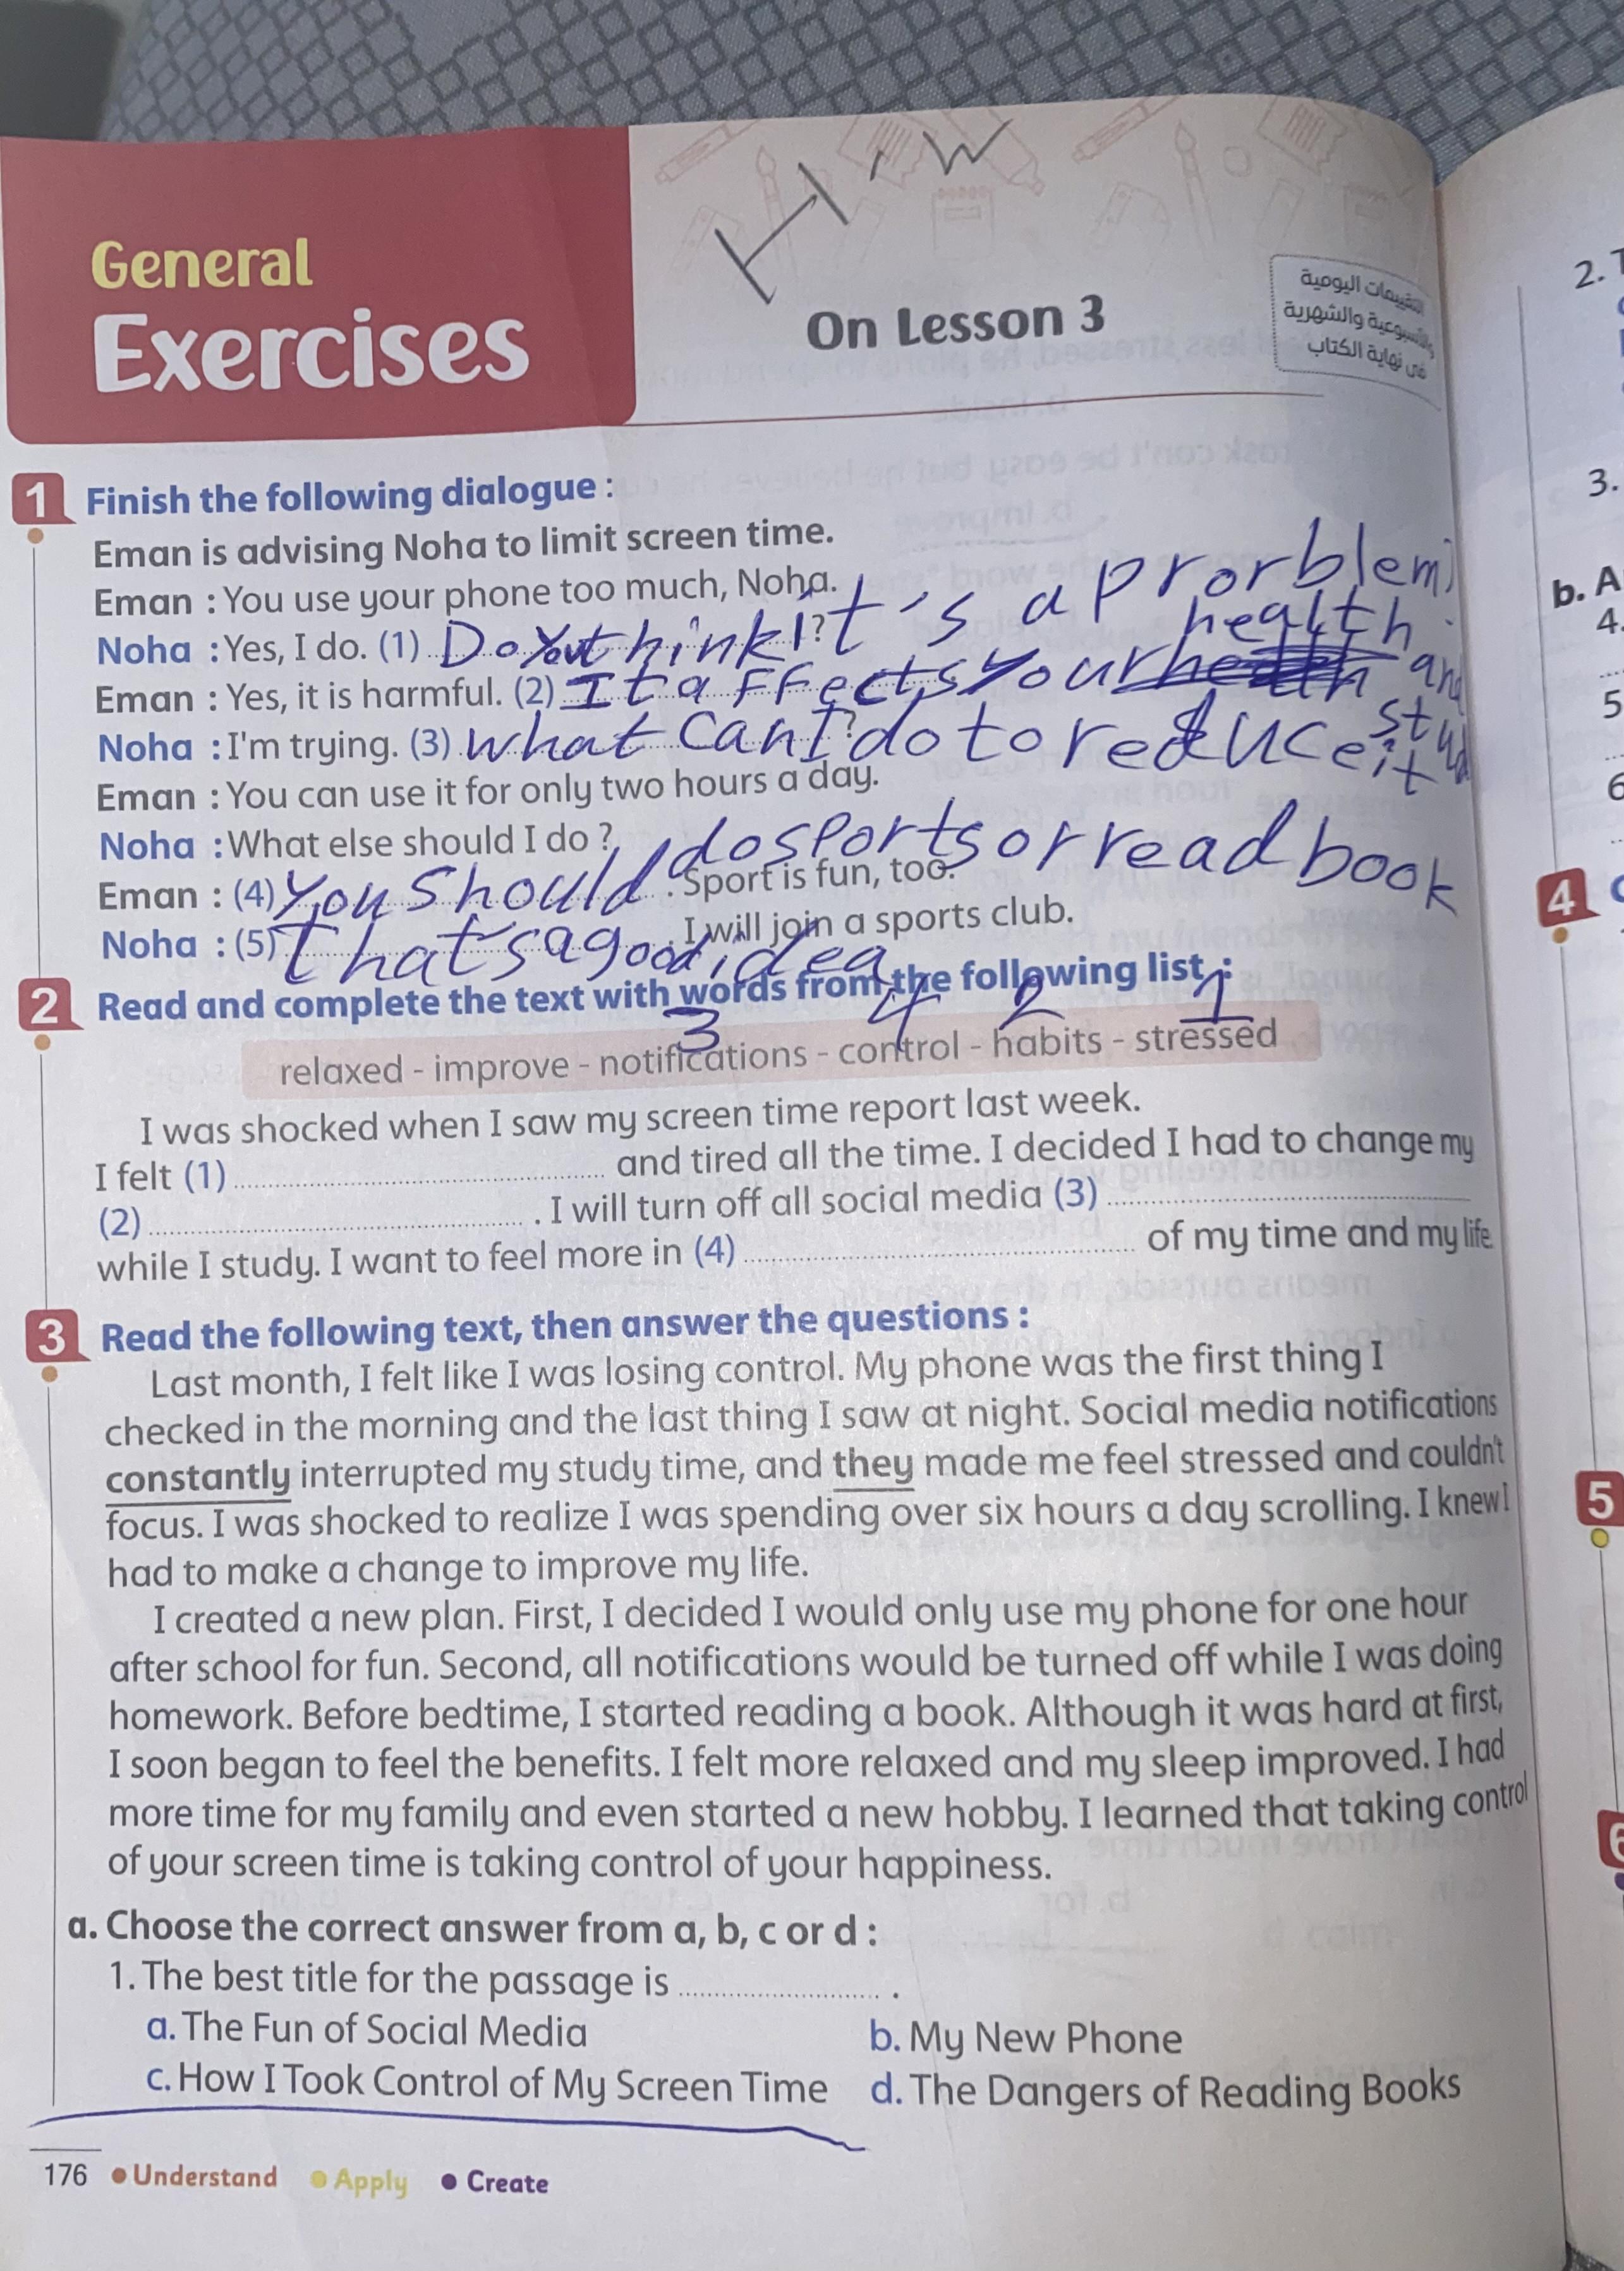 H.W
General
Exercises
On Lesson 3
التقييمات اليومية
والأسبوعية والشهرية
فى نهاية الكتاب
1 Finish the following dialogue :
Eman is advising Noha to limit screen time.
Eman : You use your phone too much, Noha.
Noha : Yes, I do. (1) Do you think it's a prorblem ?
Eman : Yes, it is harmful. (2) It affects your health and stud
Noha : I'm trying. (3) what can I do to reduce it ?
Eman : You can use it for only two hours a day.
Noha : What else should I do ?
Eman : (4) You should do sports or read book . Sport is fun, too.
Noha : (5) that's a good idea . I will join a sports club.
2 Read and complete the text with words from the following list :
3 4 2 1
relaxed - improve - notifications - control - habits - stressed
I was shocked when I saw my screen time report last week.
I felt (1) and tired all the time. I decided I had to change my
(2) . I will turn off all social media (3)
while I study. I want to feel more in (4) of my time and my life
3 Read the following text, then answer the questions :
Last month, I felt like I was losing control. My phone was the first thing I
checked in the morning and the last thing I saw at night. Social media notifications
constantly interrupted my study time, and they made me feel stressed and couldn't
focus. I was shocked to realize I was spending over six hours a day scrolling. I knew I
had to make a change to improve my life.
I created a new plan. First, I decided I would only use my phone for one hour
after school for fun. Second, all notifications would be turned off while I was doing
homework. Before bedtime, I started reading a book. Although it was hard at first,
I soon began to feel the benefits. I felt more relaxed and my sleep improved. I had
more time for my family and even started a new hobby. I learned that taking control
of your screen time is taking control of your happiness.
a. Choose the correct answer from a, b, c or d :
1. The best title for the passage is .
a. The Fun of Social Media b. My New Phone
c. How I Took Control of My Screen Time d. The Dangers of Reading Books
176 Understand Apply Create
2.
3.
b. A
4.
5
6
4
5
6